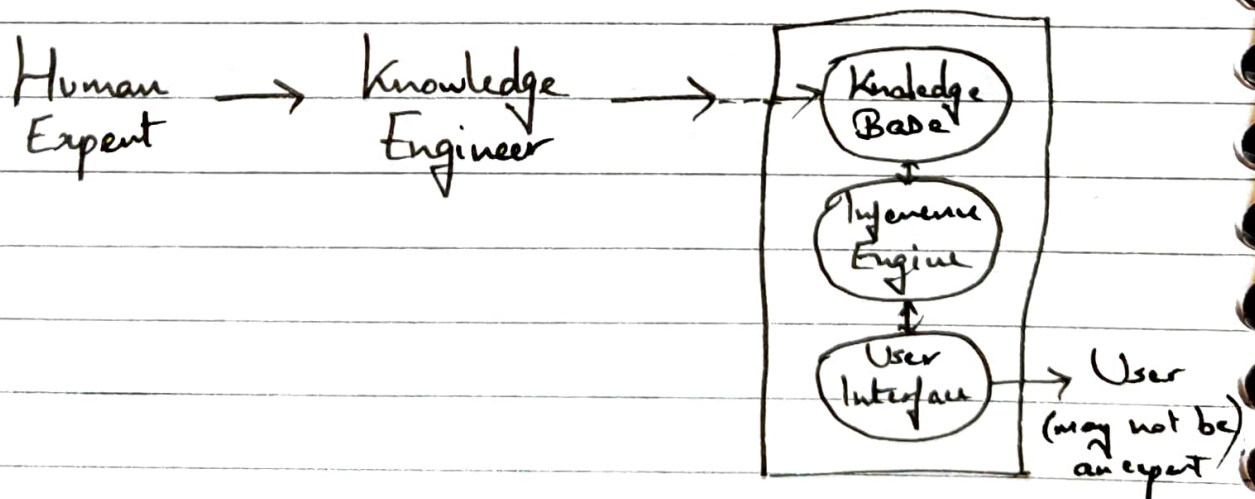 Human
Expert
Knowledge
Engineer
Knoledge
Base
Inference
Engine
User
Interface
User
(may not be)
an expert